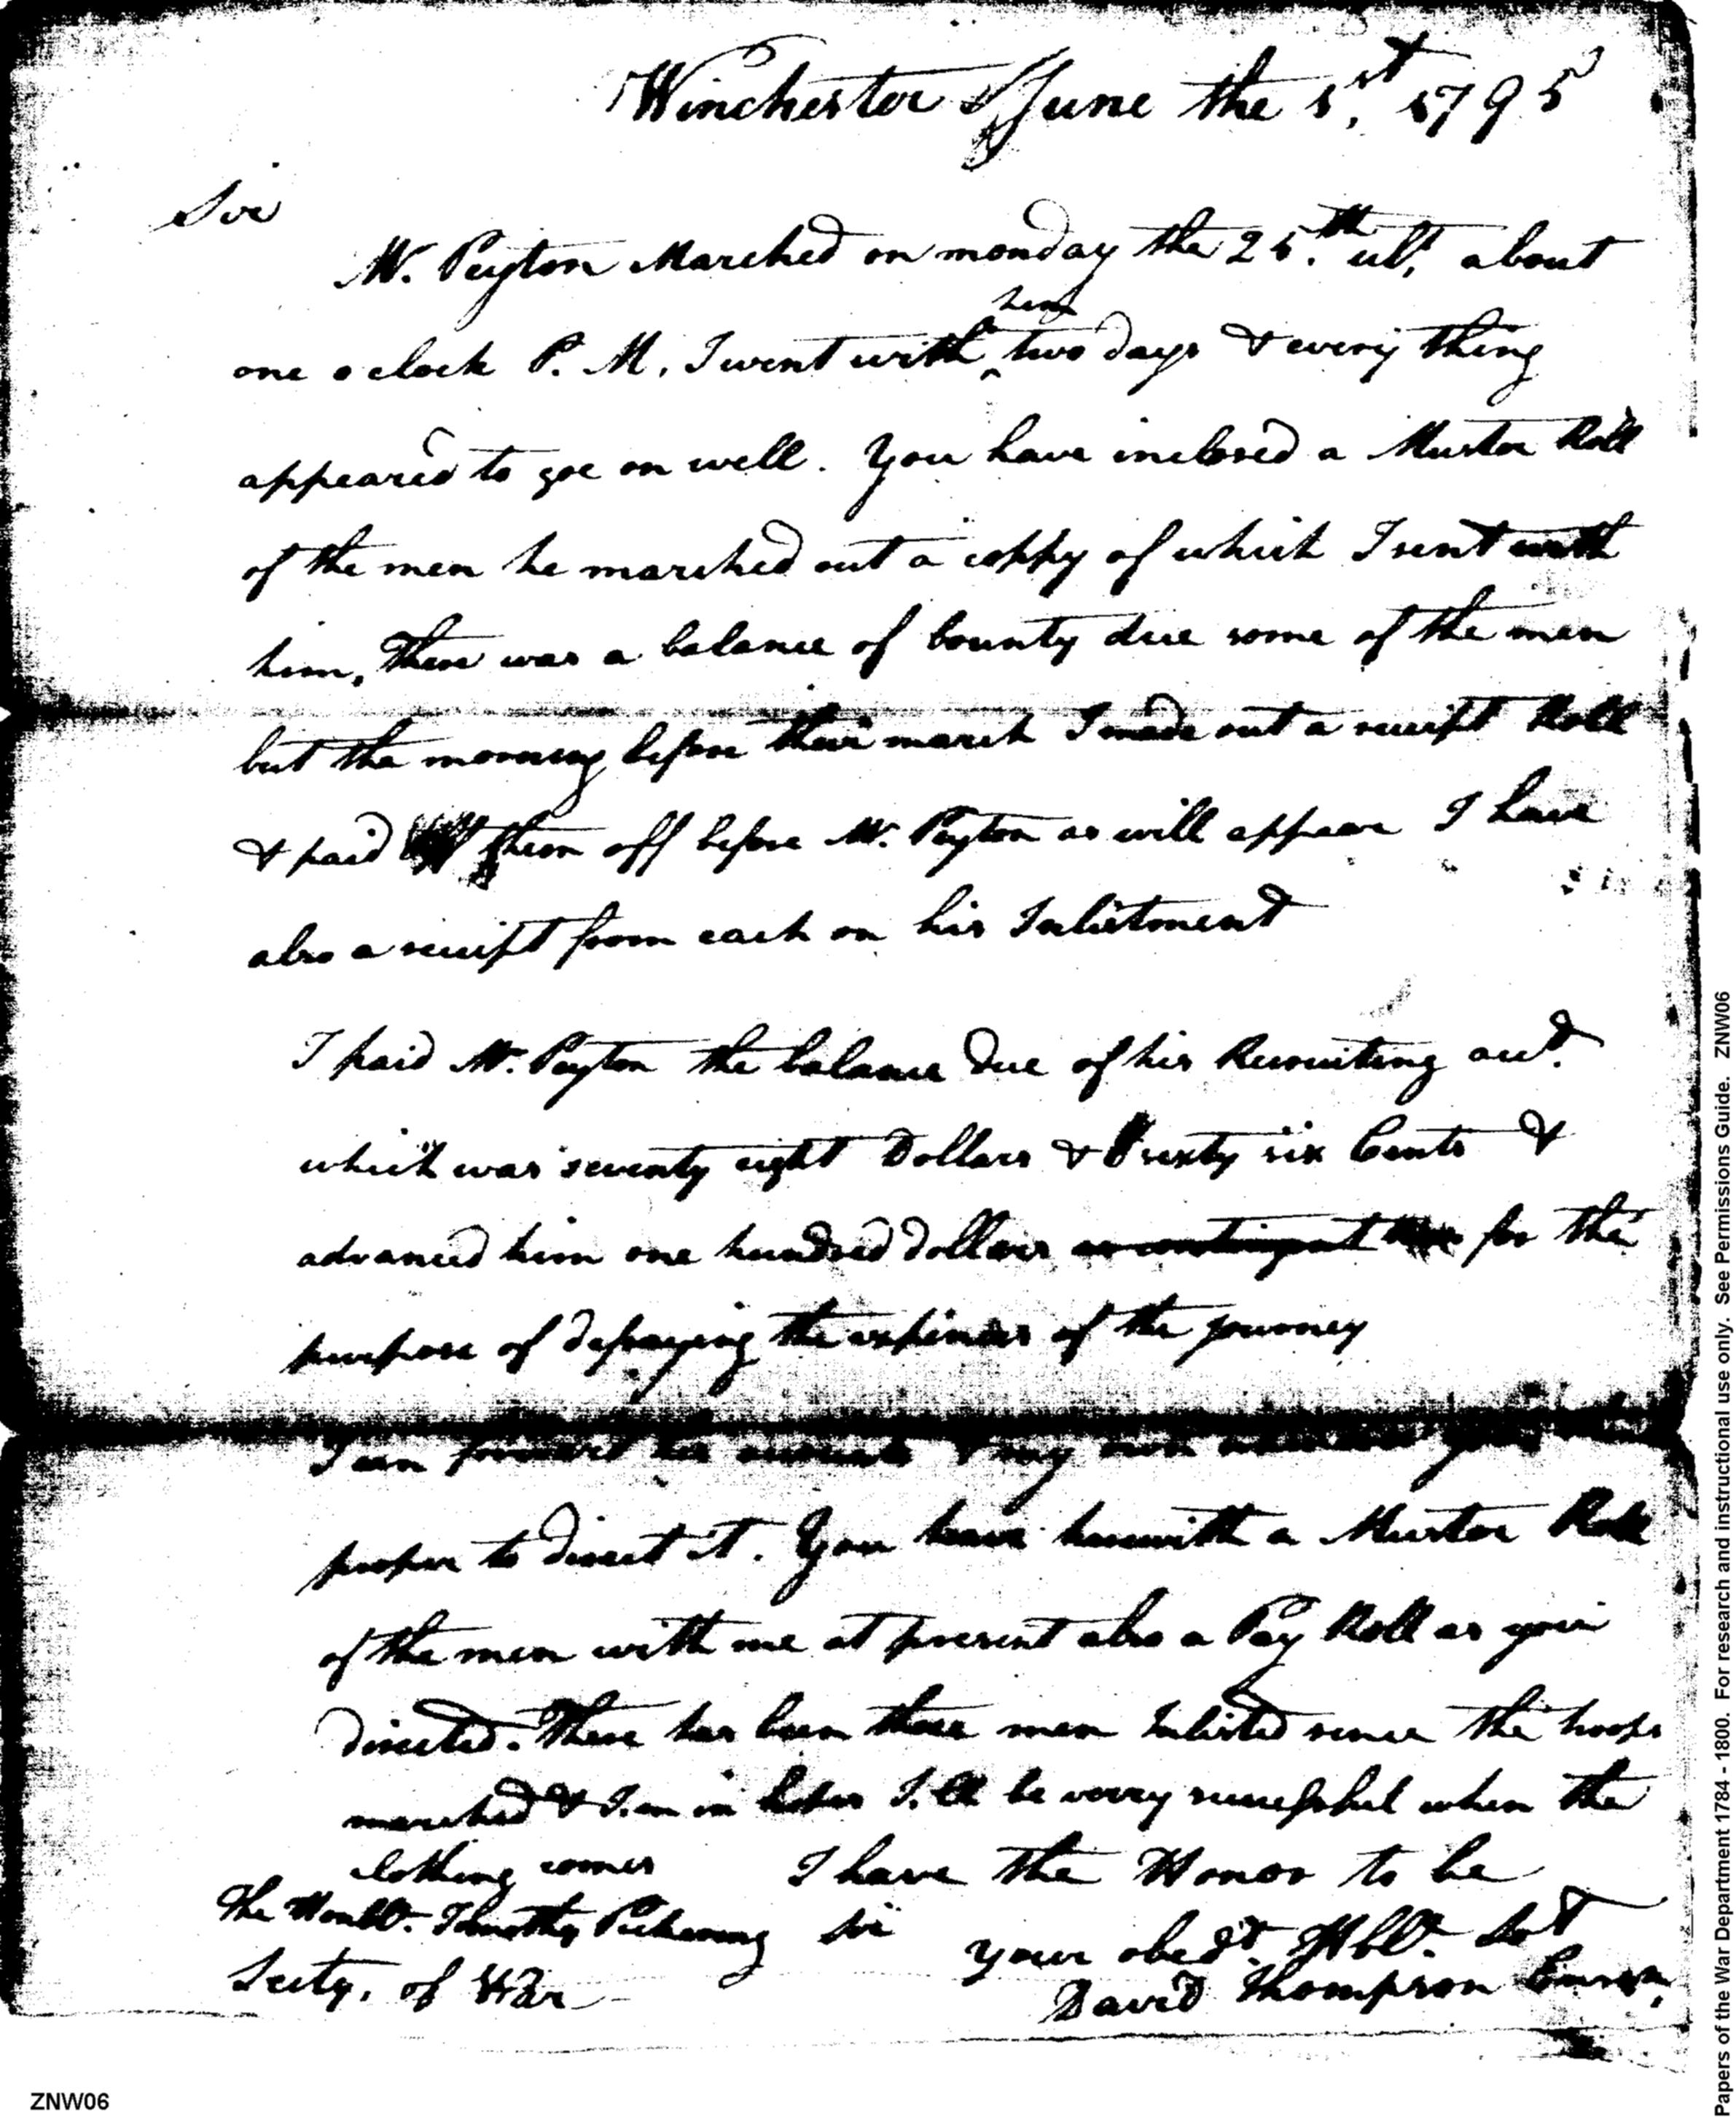 Winchester June the 1st, 1795
Sir
Mr. Peyton Marched on monday the 25.th ult, about
him
one o clock P. M, I went with ^ two days & every thing
appeared to goe on well. You have inclosed a Muster Roll
of the men he marched out a coppy of which I sent with
him, There was a balance of bounty due some of the men
but the morning before their march I made out a receipt Roll
& paid them off before Mr. Peyton as will appear I have
also a receipt from each on his Inlistment
I paid Mr. Peyton the balance due of his Recruiting acct.
which was seventy eight Dollars & sixty six Cents &
advanced him one hundred dollars as contingent for the
purpose of defraying the expences of the journey
I can forward his accounts & my own whenever you think
proper to direct it. You have herewith a Muster Roll
of the men with me at present also a Pay Roll as you
directed. There has been three men Inlisted since the troops
marched & I.m in hopes I.ll be verry successful when the
clothing comes I have the Honor to be
The Honble. Timothy Pickering Sir
your obedt. Hble. Sert
Secty, of War
David Thompson
Papers of the War Department 1784 - 1800. For research and instructional use only. See Permissions Guide. ZNW06
ZNW06